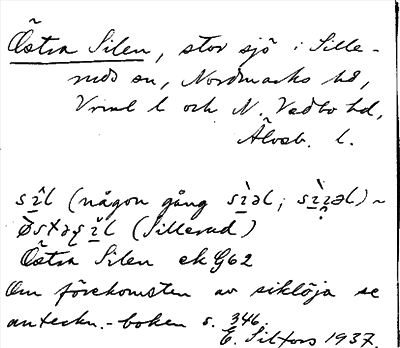 Östra Silen, stor sjö i Sille-
ruds sn, Nordmarks hd,
Vrml l och N. Vedbo hd,
Älvsb. l.
sīl (någon gång sìəl; sìəl) ~
sīl (Sillerud)
Östra Silen ek G62
Om förekomsten av siklöja se
anteckn.-boken s. 346.
E. Silfors 1937.